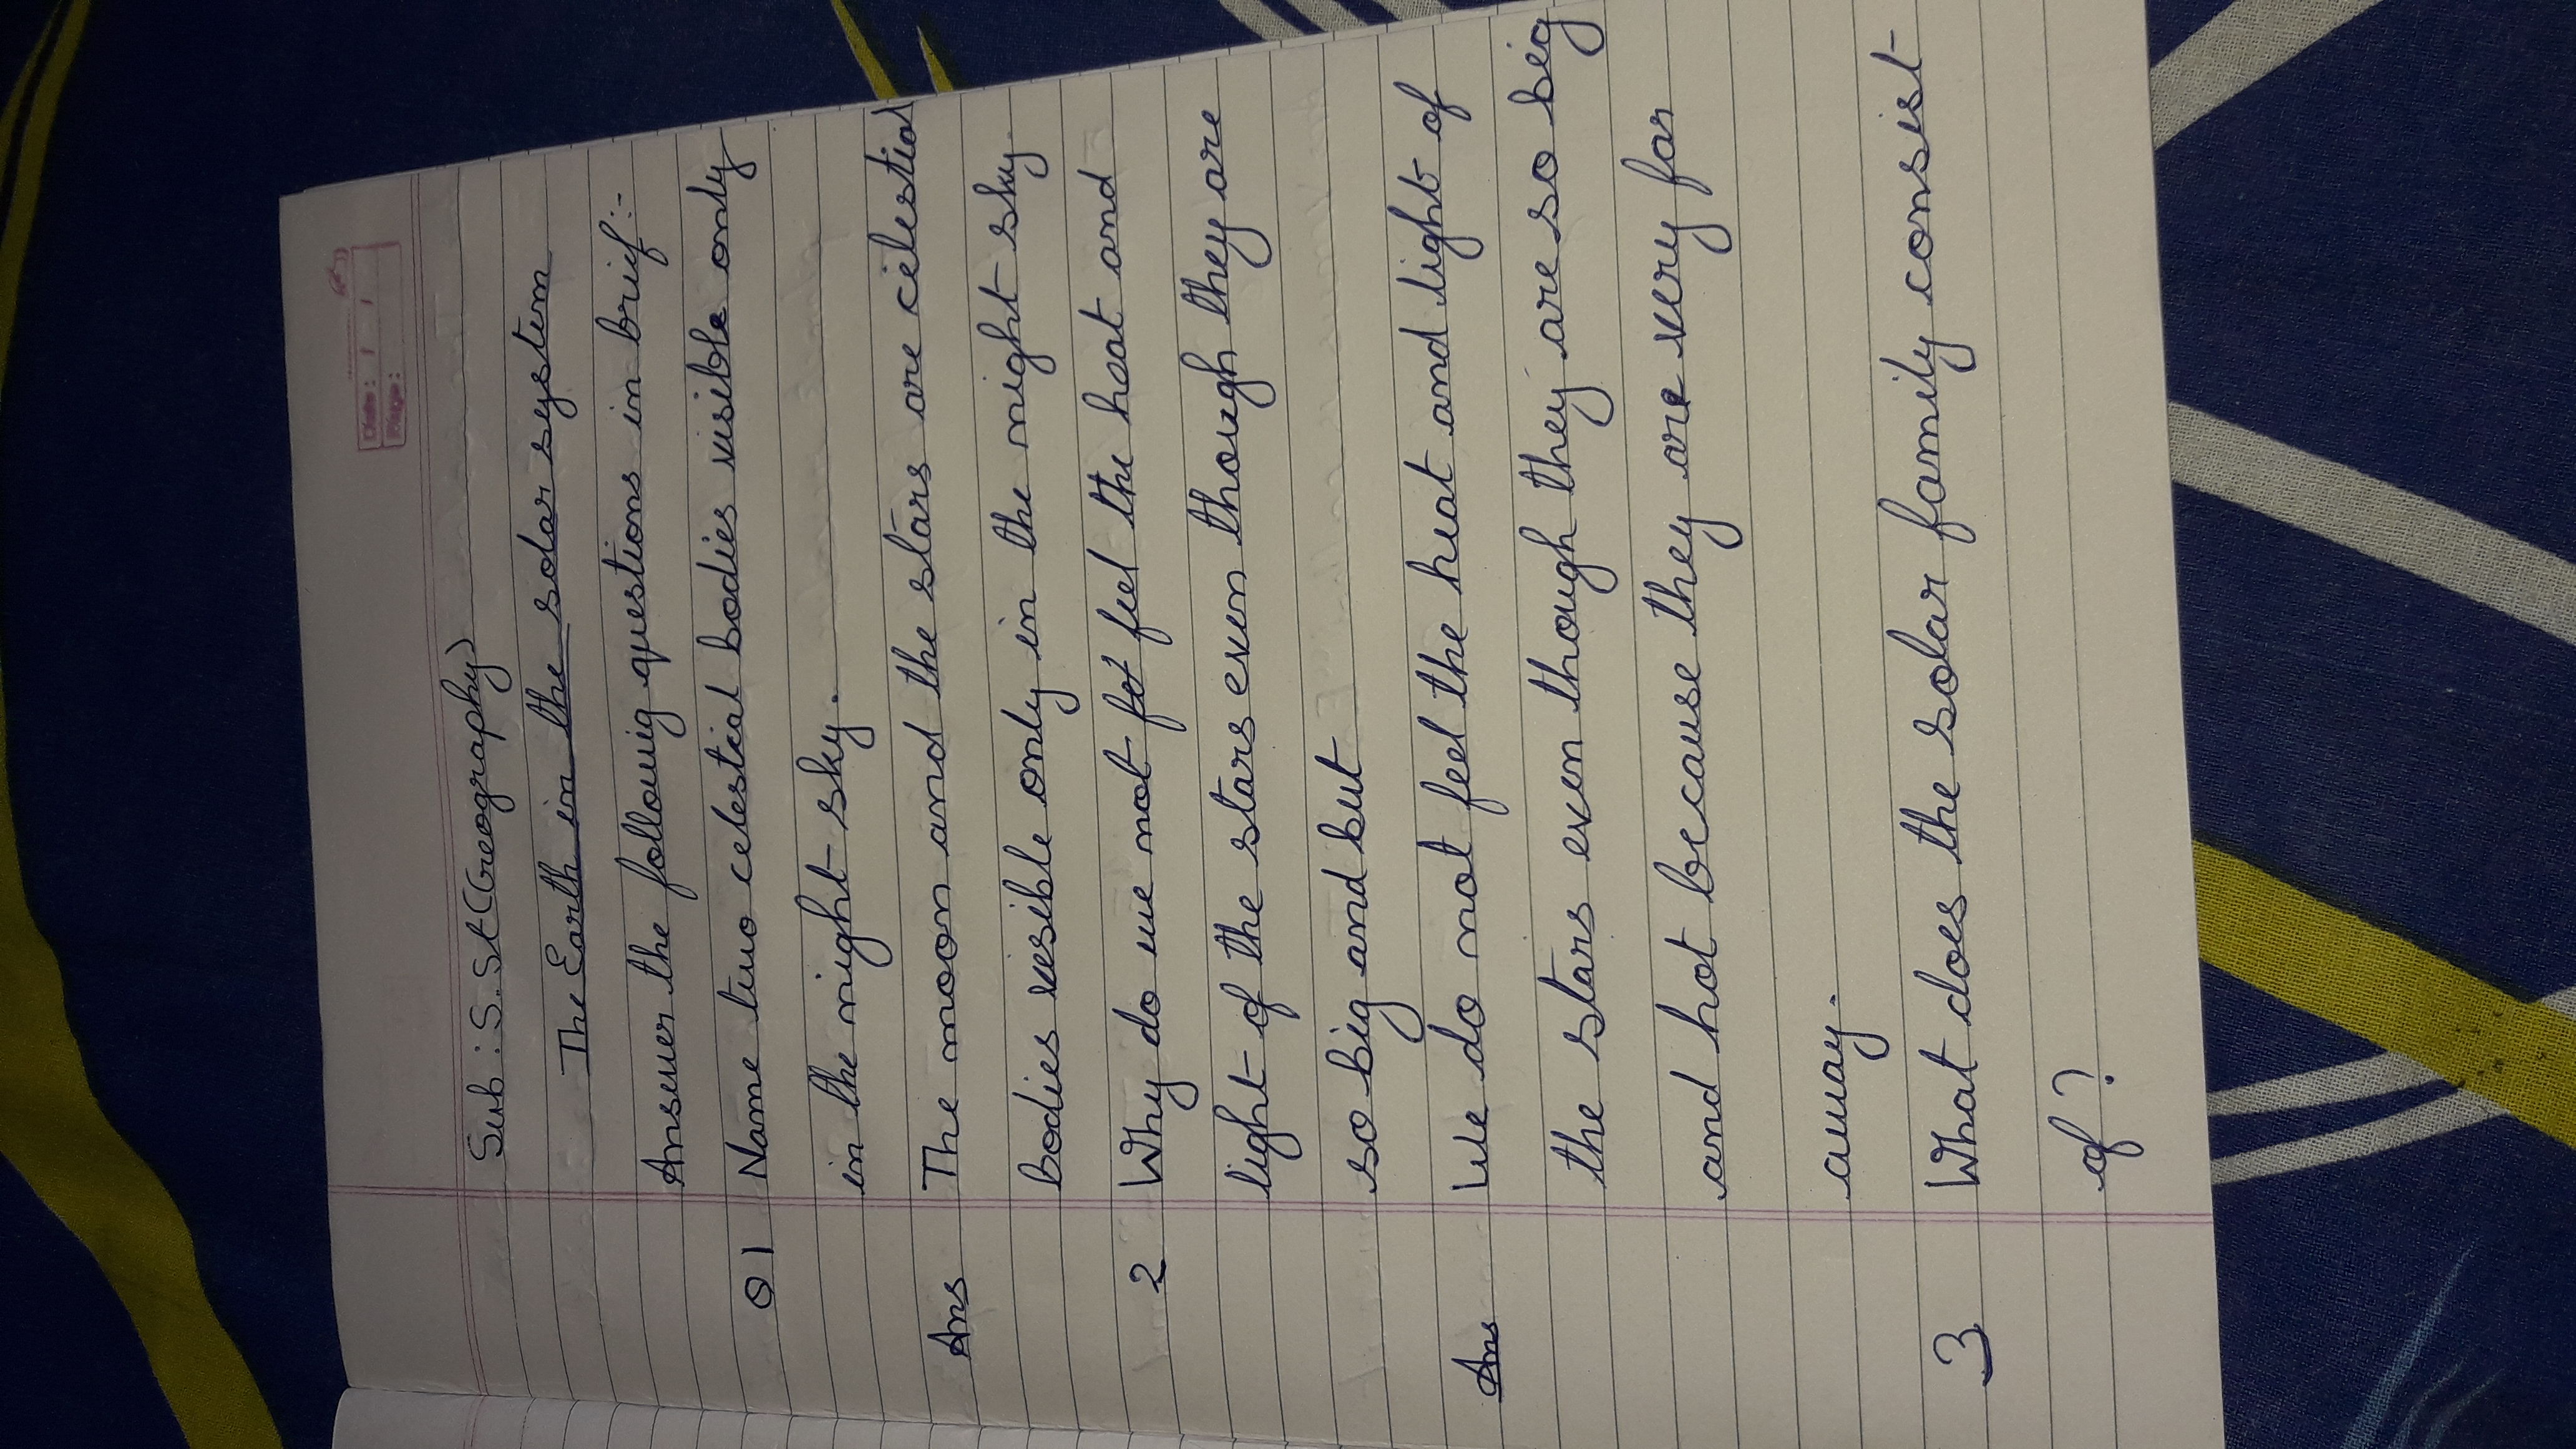 Date: / /
Page:
Sub: S.St (Geography)
The Earth in the solar system
Answer the followig questions in brief:-
Q1 Name two celestial bodies visible only
in the night sky.
Ans The moon and the stars are celestial
bodies visible only in the night sky.
2 Why do we not feel the heat and
light of the stars even though they are
so big and but
Ans We do not feel the heat and light of
the stars even though they are so big
and hot because they are very far
away.
3 What does the solar family consist
of?